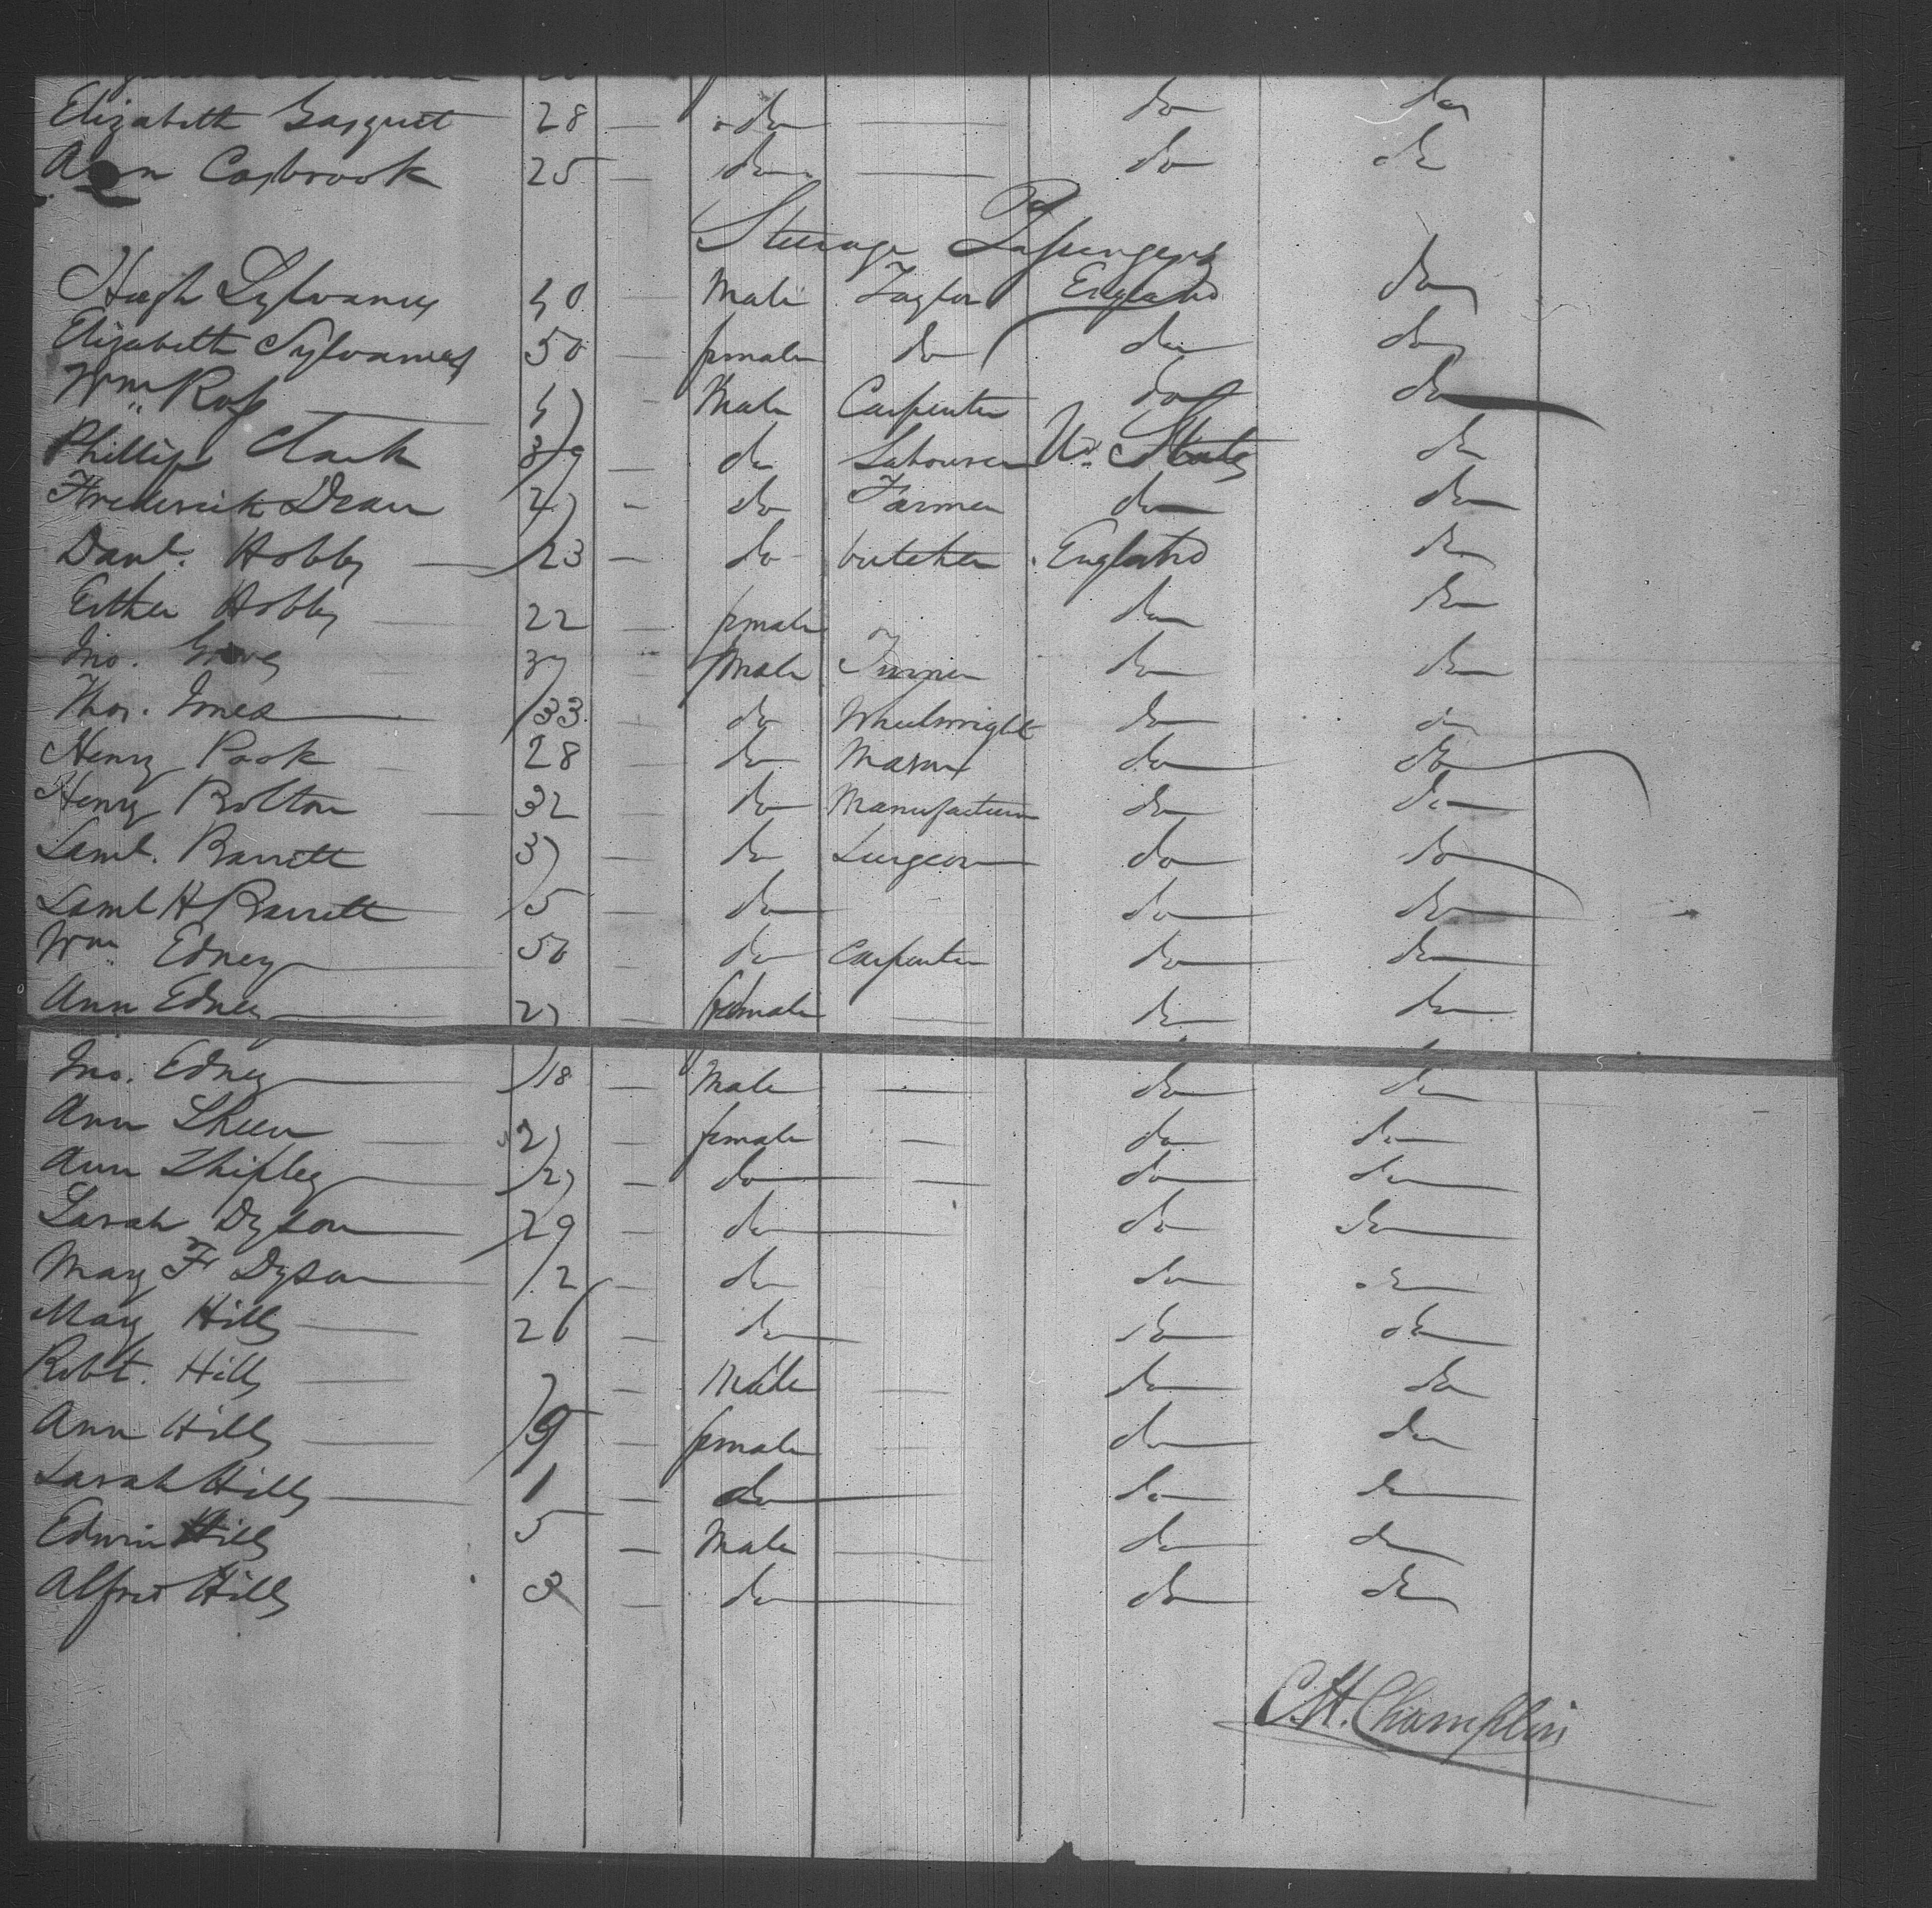 Elizabeth Gasquet 28 — do — do do
Ann Casbrook 25 — do — do do
Steerage Passengers
Hugh Sylvanus 50 — Male Taylor England do
Elizabeth Sylvanus 50 — female do do do
Wm Ross — 47 — Male Carpenter do do
Phillip Clark 39 — do Labourer Ud. States do
Frederick Dean 27 — do Farmer do do
Danl. Hobbs — 23 — do butcher England do
Esther Hobbs — 22 — female do do
Jno. 37 — Male do do
Thos. Jones — 33 — do Wheelwright do do
Henry Pook — 28 — do Mason do do
Henry Bolton — 32 — do Manufacturer do do
Saml. Barrett 37 — do Surgeon do do
Saml H Barrett 5 — do do do
Wm. Edney — 50 — do Carpenter do do
Ann Edney — 27 — female — do do
Jno. Edney — 18 — Male — do do
Ann Sheen — 27 — female — do do
Ann Shipley — 27 — do — do do
Sarah Dyson — 29 — do — do do
Mary F Dyson — 2 — do do do
Mary Hills — 26 — do — do do
Robt. Hills — 7 — Male — do do
Ann Hills — 9 — female — do do
Sarah Hills — 1 — do — do do
Edwin Hills 5 — Male — do do
Alfred Hills 3 — do — do do
C. H. Champlin